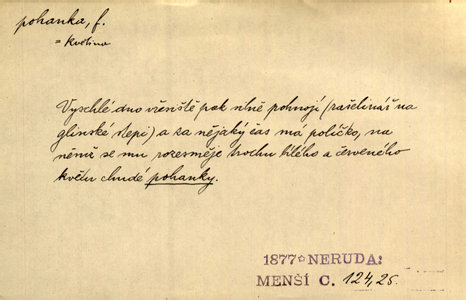 pohanka, f.
= květina
Vyschlé dno vřeniště pak silně pohnojí (rašelinář na
glinské stepi) a za nějaký čas má políčko, na
němž se mu rozesměje trochu bílého a červeného
květu chudé pohanky.
1877 NERUDA:
MENŠÍ C. 124, 25.